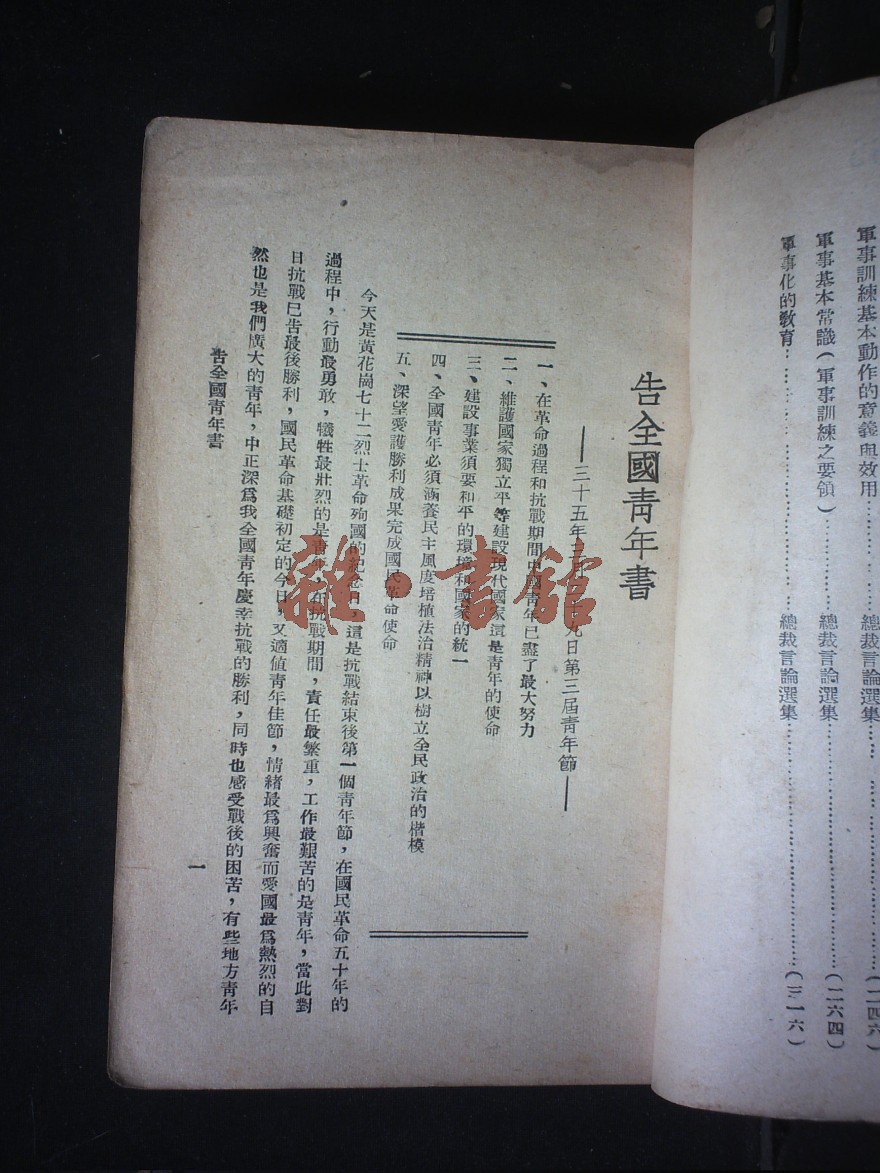 軍事訓練基本動作的意義與效用……總裁言論選集……(二四六)
軍事基本常識(軍事訓練之要領)……總裁言論選集……(二六四)
軍事化的教育……總裁言論選集……(三一六)
告全國青年書
——三十五年三月 九日第三屆青年節——
一、在革命過程和抗戰期間中國青年已盡了最大努力
二、維護國家獨立平等建設現代國家這是青年的使命
三、建設事業須要和平的環境和國家的統一
四、全國青年必須涵養民主風度培植法治精神以樹立全民政治的楷模
五、深望愛護勝利成果完成國民革命使命
今天是黃花崗七十二烈士革命殉國的紀念日,這是抗戰結束後第一個青年節,在國民革命五十年的
過程中,行動最勇敢,犧牲最壯烈的是青年,在抗戰期間,責任最繁重,工作最艱苦的是青年,當此對
日抗戰已告最後勝利,國民革命基礎初定的今日,又適值青年佳節,情緒最爲興奮而愛國最爲熱烈的自
然也是我們廣大的青年,中正深爲我全國青年慶幸抗戰的勝利,同時也感受戰後的困苦,有些地方青年
告全國青年書
一
雜·書館